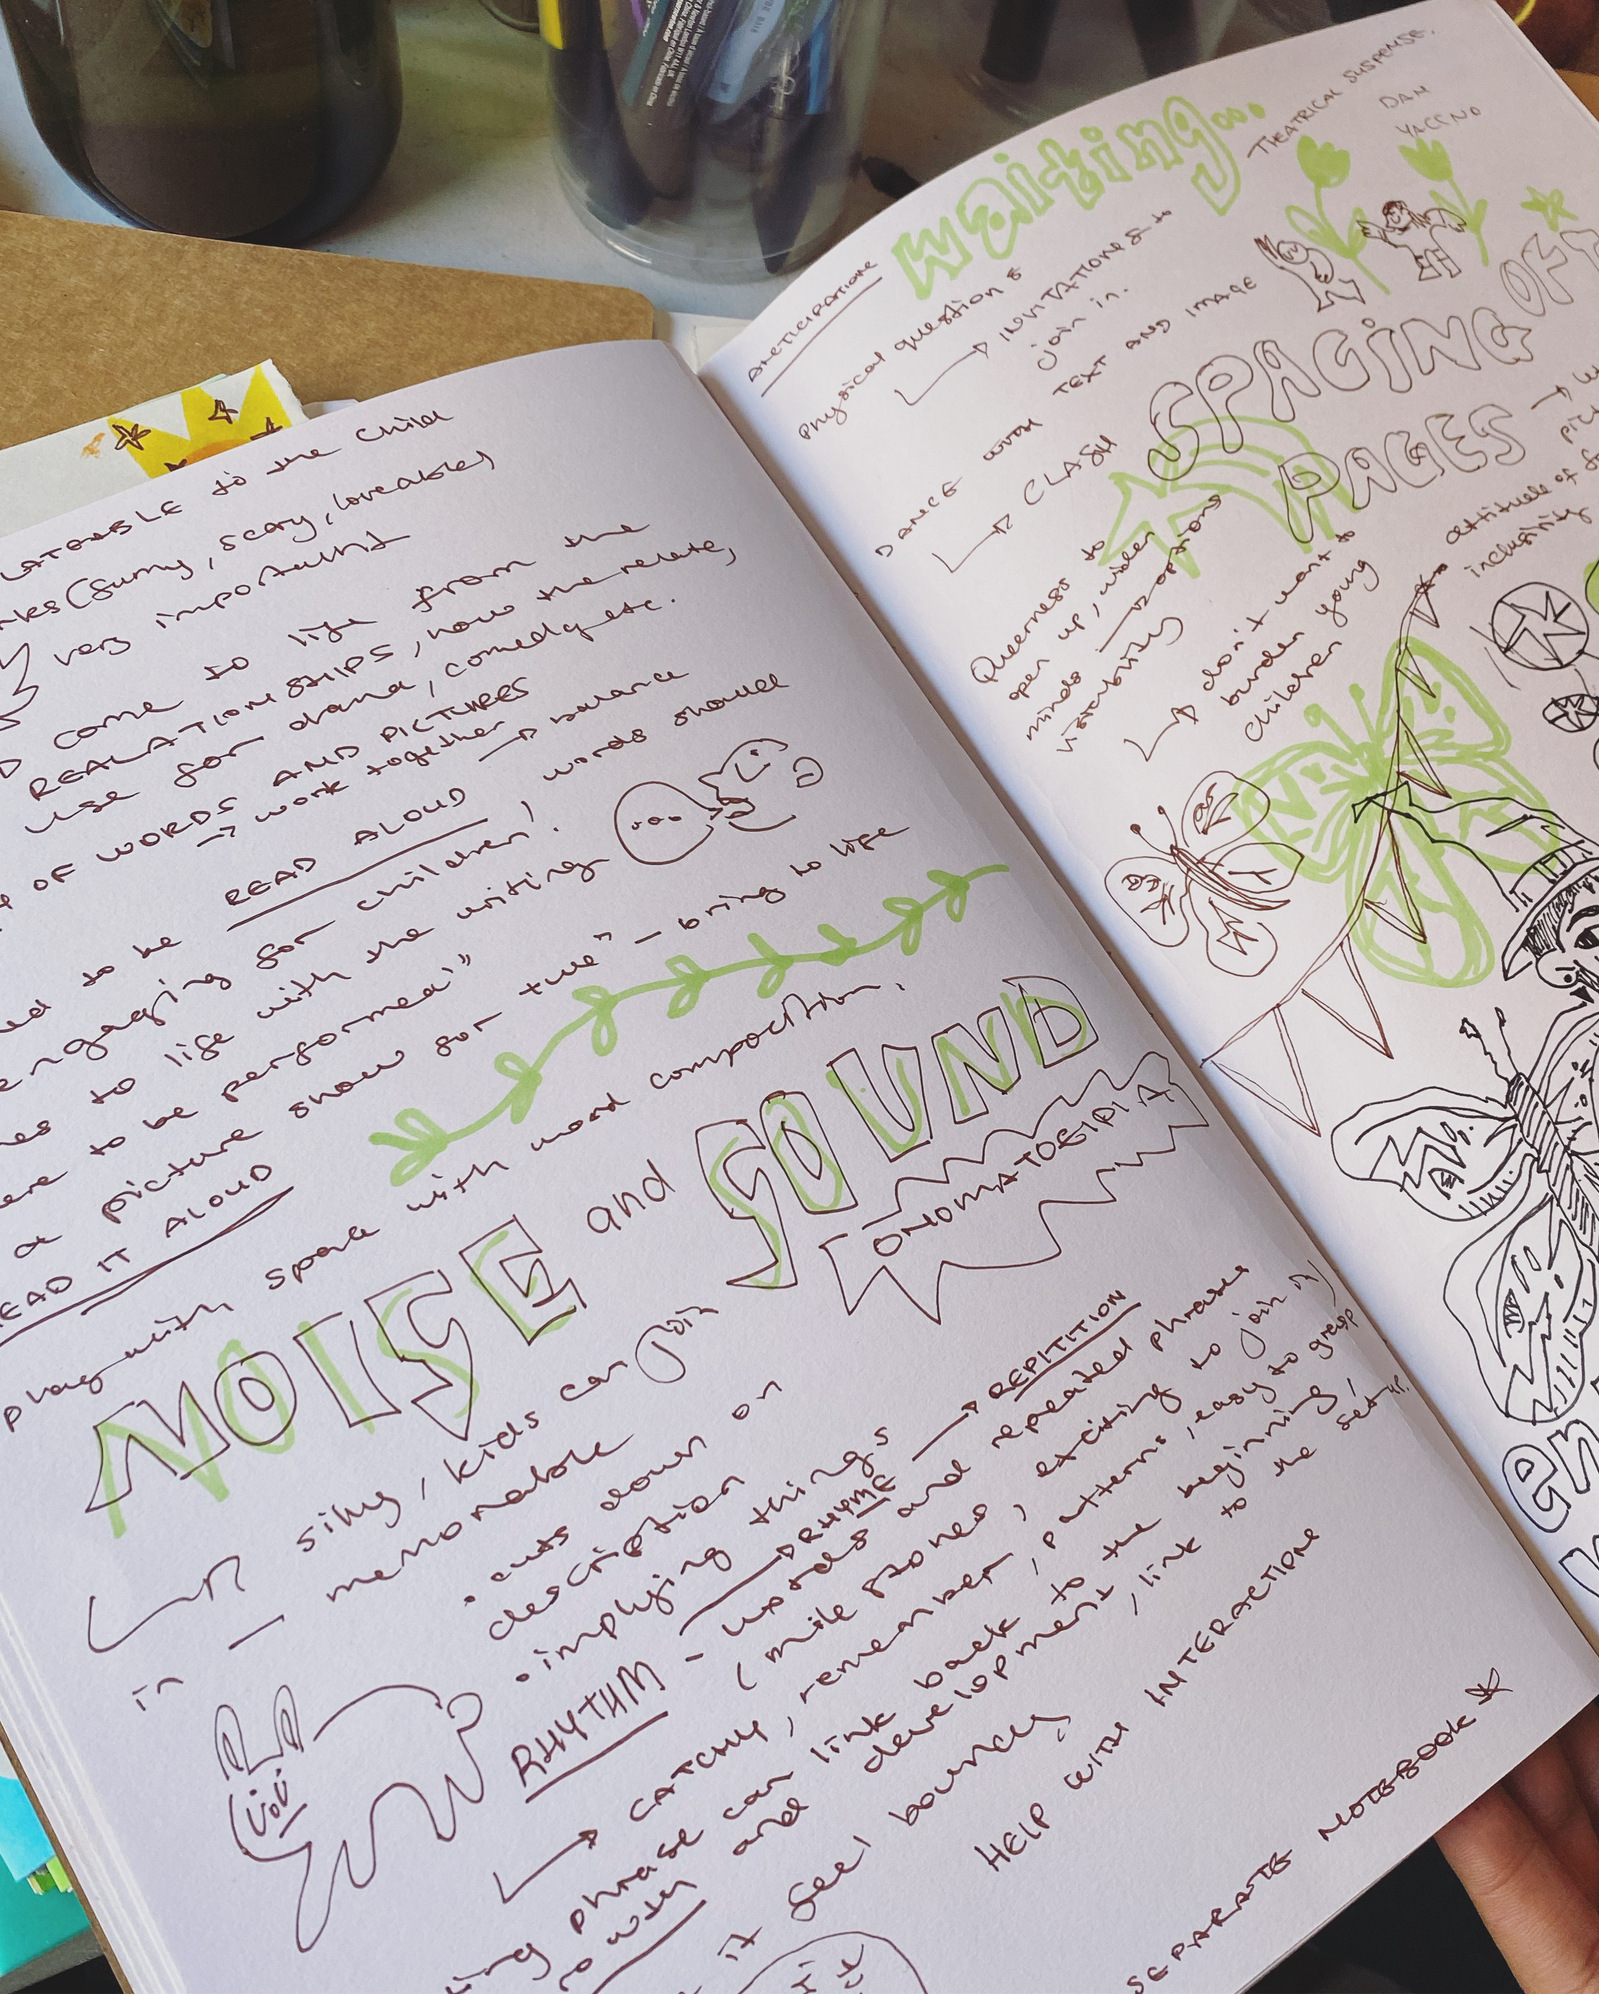 to the child
(funny, scary, loveable)
very important
come to life from the
REALATIONSHIPS, how the relate,
use for drama, comedy etc.
OF WORDS AND PICTURES
→ work together → balance
to be READ ALOUD, words should
engaging for children!
to life with the writing
to be performed"
a picture show for two" – bring to life
READ IT ALOUD
play with space with word composition.
NOISE and SOUND
ONOMATOEIPIA
silly, kids can join
in – memorable
• cuts down on
description
• implying things
→ RHYME → REPITITION
RHYTHM – words and repeated phrase
(mile stones, exciting to join in)
→ CATCHY, remember, patterns, easy to grasp
phrase can link back to the beginning,
and development, link to the set up.
with
it feel bouncy
HELP WITH INTERACTIONS
SEPARATE NOTEBOOK
waiting...
THEATRICAL SUSPENSE.
DAN
YACCNO
ANCTICIPATIONS
physical questions
→ INVITATIONS to
join in.
DANCE with TEXT AND IMAGE
→ CLASH
SPACING OF
PAGES
Queerness to
open up, widen
minds → options
→ don't want to
burden young
children
attitude of
inclusivity
en